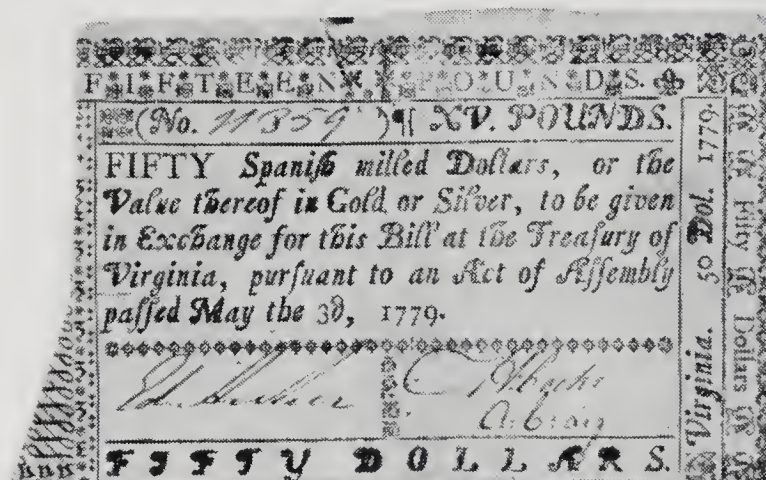 FIFTEEN POUNDS.
(No. 11359 )¶ XV. POUNDS.
FIFTY Spaniſh milled Dollars, or the
Value thereof in Gold or Silver, to be given
in Exchange for this Bill at the Treaſury of
Virginia, purſuant to an Act of Aſſembly
paſſed May the 3d, 1779.
FIFTY DOLLARS.
Virginia. 50 Dol. 1779.
Fifty
Dollars